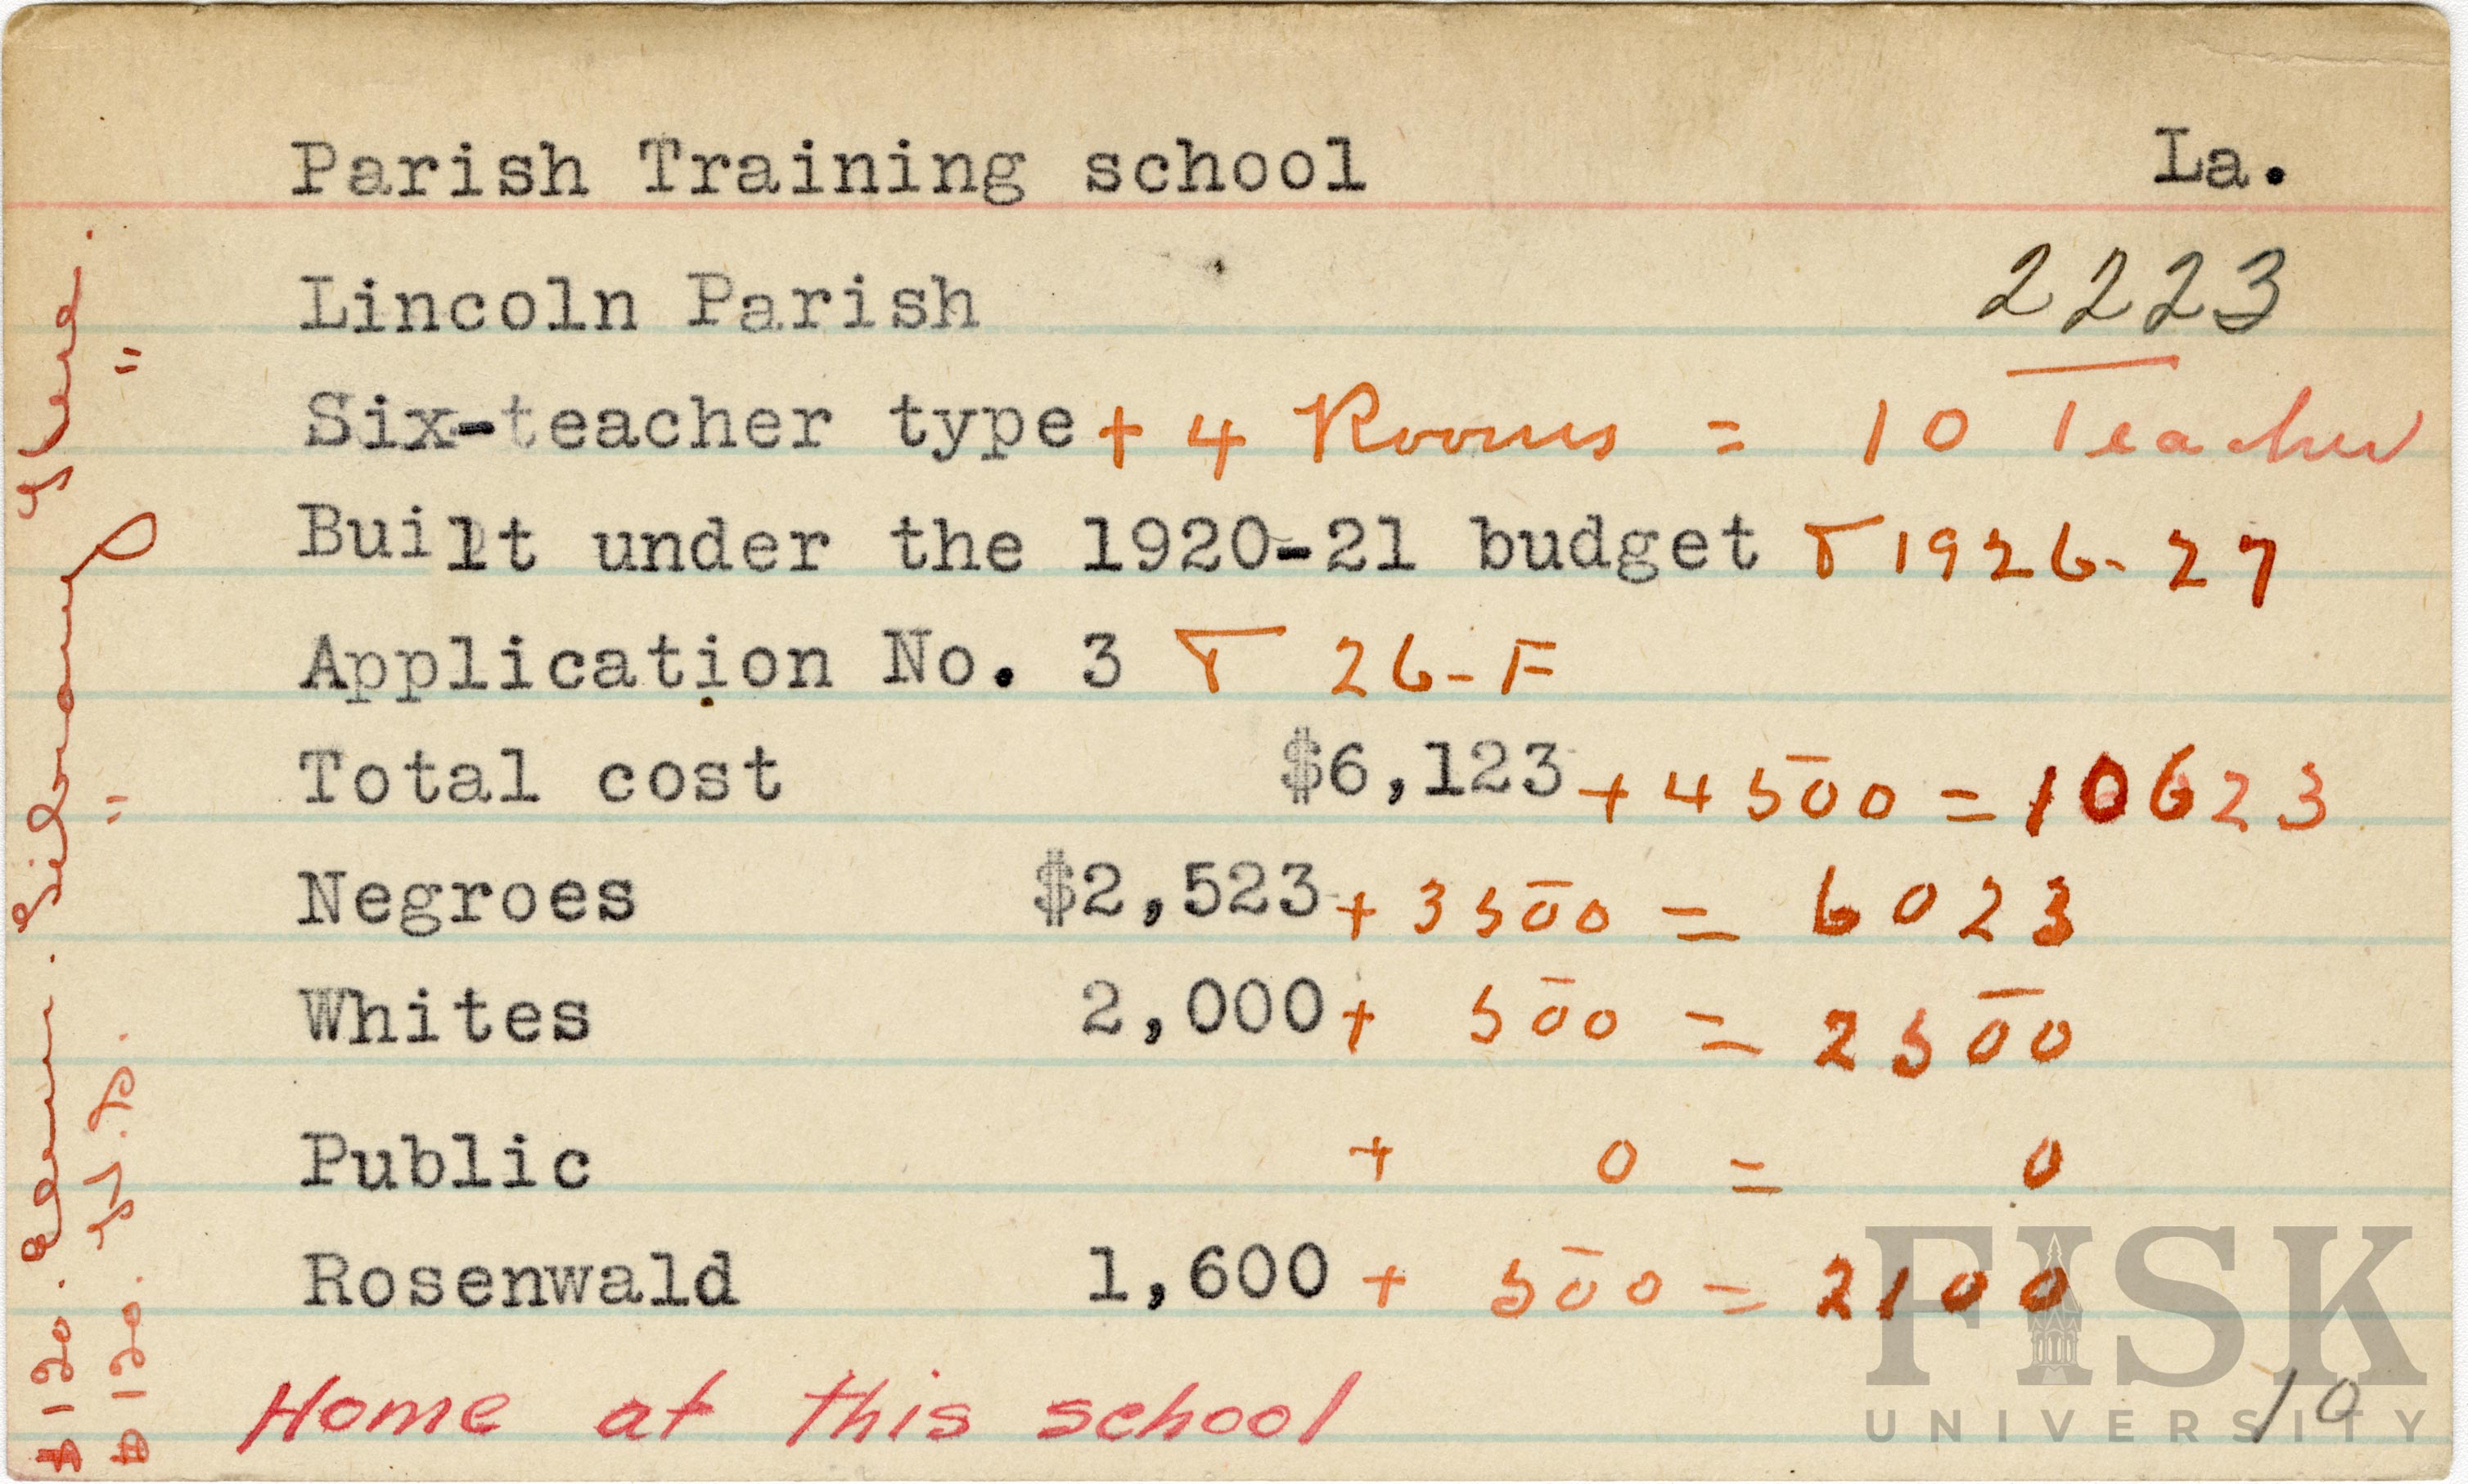 Parish Training school La.
Lincoln Parish 2223
Six-teacher type + 4 Rooms = 10 Teacher
Built under the 1920-21 budget 1926-27
Application No. 3 26-F
Total cost $6,123 + 4500 = 10623
Negroes $2,523 + 3500 = 6023
Whites 2,000 + 500 = 2500
Public + 0 = 0
Rosenwald 1,600 + 500 = 2100
Home at this school 10
$120. Elem. Library
$120. H.S. " "
FISK
UNIVERSITY